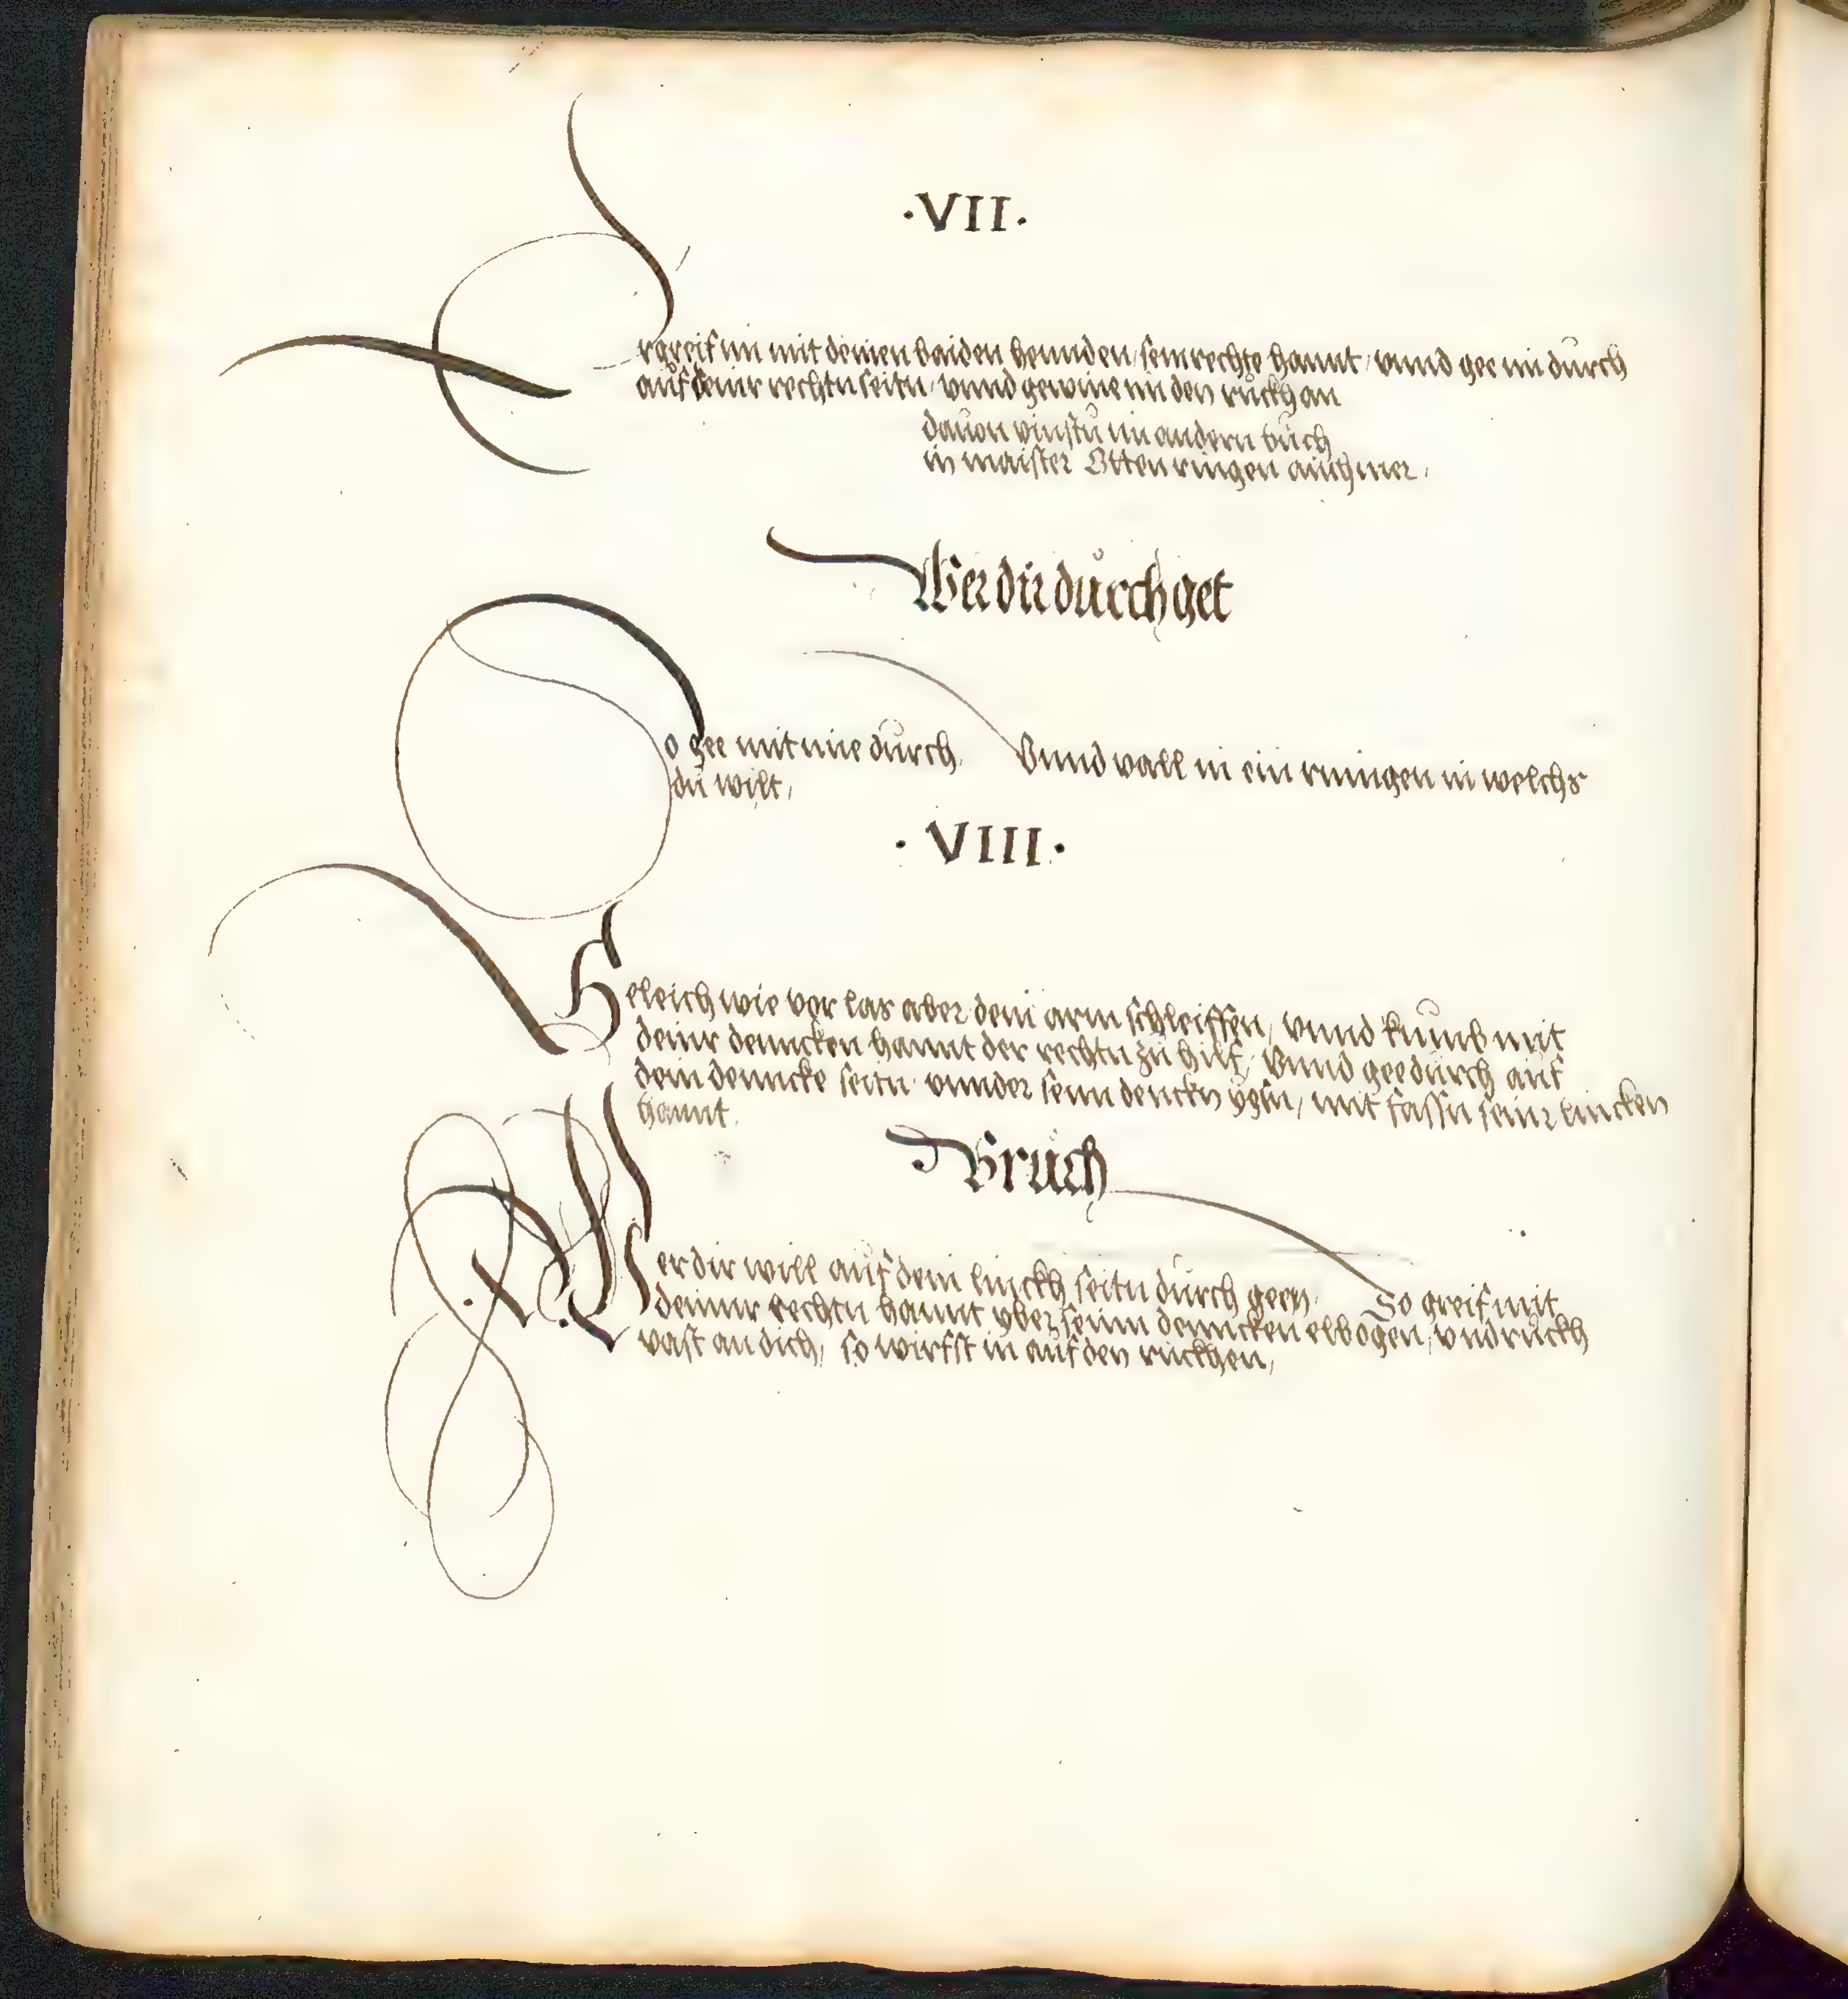 ·VII·
Ergreif im mit deinen baiden hennden, sein rechte hannt, vnnd gee im durch
auf seinr rechtn seitn, vnnd gewine im den rückh an
dauon vinstu im andern büch
in maister Otten ringen auch mer,
Wer dir dürchget
So gee mit nie dürch, Vnnd vall in ein rningen in welchs
du wilt,
· VIII ·
Geleich wie vor las aber dein arm schleiffen, vnnd kumb mit
deinr denncken hannt der rechtn zu hilf, Vnnd gee dürch auf
dein denncke seitn vnnder seim denckn ygsn, mit fassn seinr lincken
hannt.
Bruch
Wer dir will auf dein linckh seitn dürch geen, So greif mit
deinnr rechtn hannt vber seinn denncken elbogen, vndruckh
vast an dich, so wirfst in auf den rückhen,